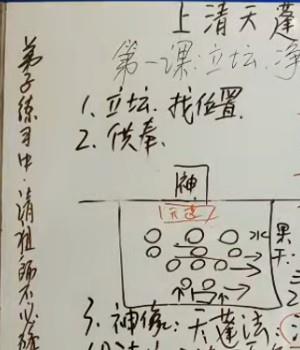 上清天蓬
第一课:立坛、净
1、立坛、找位置
2、供奉、
神
天蓬
水
果
于:
3、神像:天蓬法:
弟子练习中,请祖师不必